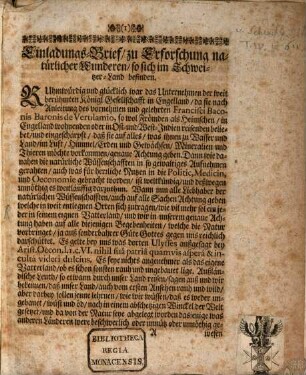 (1)
Einladungs-Brief/ zu Erforschung na-
türlicher Wunderen/ so sich im Schwei-
tzer-Land befinden.
RUhmwürdig und glücklich war das Unternehmen der weit
berühmten Königl. Gesellschafft in Engelland/ da sie nach
Anleitung des vornehmen und gelehrten Francisci Baco-
nis Baronis de Verulamio, so wol Frömden als Heimschen/ in
Engelland wohnenden oder in Ost- und West-Indien reisenden beliebt
het/ und eingeschärpft/ daß sie auf alles/ was ihnen zu Wasser und
Land/ im Lufft/ Himmel/ Erden und Gewächsen/ Mineralien und
Thieren möchte vorkommen/ genaue Achtung geben. Dann wie da-
nahen die natürliche Wüssenschafften in so gewaltiges Aufnehmen
gerahten/ auch was für herrliche Nutzen in die Politic, Medicin,
und Oeconomie gebracht worden/ ist weltkündig/ und deßwegen
unnöthig es weitläuffig darzuthun. Wann nun alle Liebhaber der
natürlichen Wüssenschafften/ auch auf alle Sachen Achtung geben
welchen in weit entlegnen Orten sich zutragen/ wie vil mehr sol ein je-
der in seinem eignen Vatterland/ und wir in unserem genaue Ach-
tung haben auf alle diejenigen Begebenheiten/ welche die Natur
vorbringet/ ja auß sonderbahrer Güte Gottes gegen uns reichlich
außschüttet. Es gelte bey uns was dorten Ulysses außgesagt bey
Arist. Oecon. l. 1. c. VI. nihil fibi patriâ quamvis asperâ & in-
culta videri dulcius. Es seye nichts angenehmer als das eigne
Vatterland/ ob es schon sonsten rauh und ungebauet lige. Außländ-
ische Land/ so etwann durch unser Land reisen/ sagen aus/ und wir
bekennen/ daß unser Land/ auch vom ersten Ansehen rauh und wild/
aber darbey sollen jenne lehrnen/ wie wir wüssen/ daß es weder un-
gebauet/ wüst und öde/ noch in einem abschetzigen Winckel der Welt
gesetzet/ und da von der Natur seye abgelegt worden dasjenige was
anderen Länderen were beschwerlich oder unnütz oder unnöthig ge-
wesen
BIBLIOTHECA
REGIA
MONACENSIS.